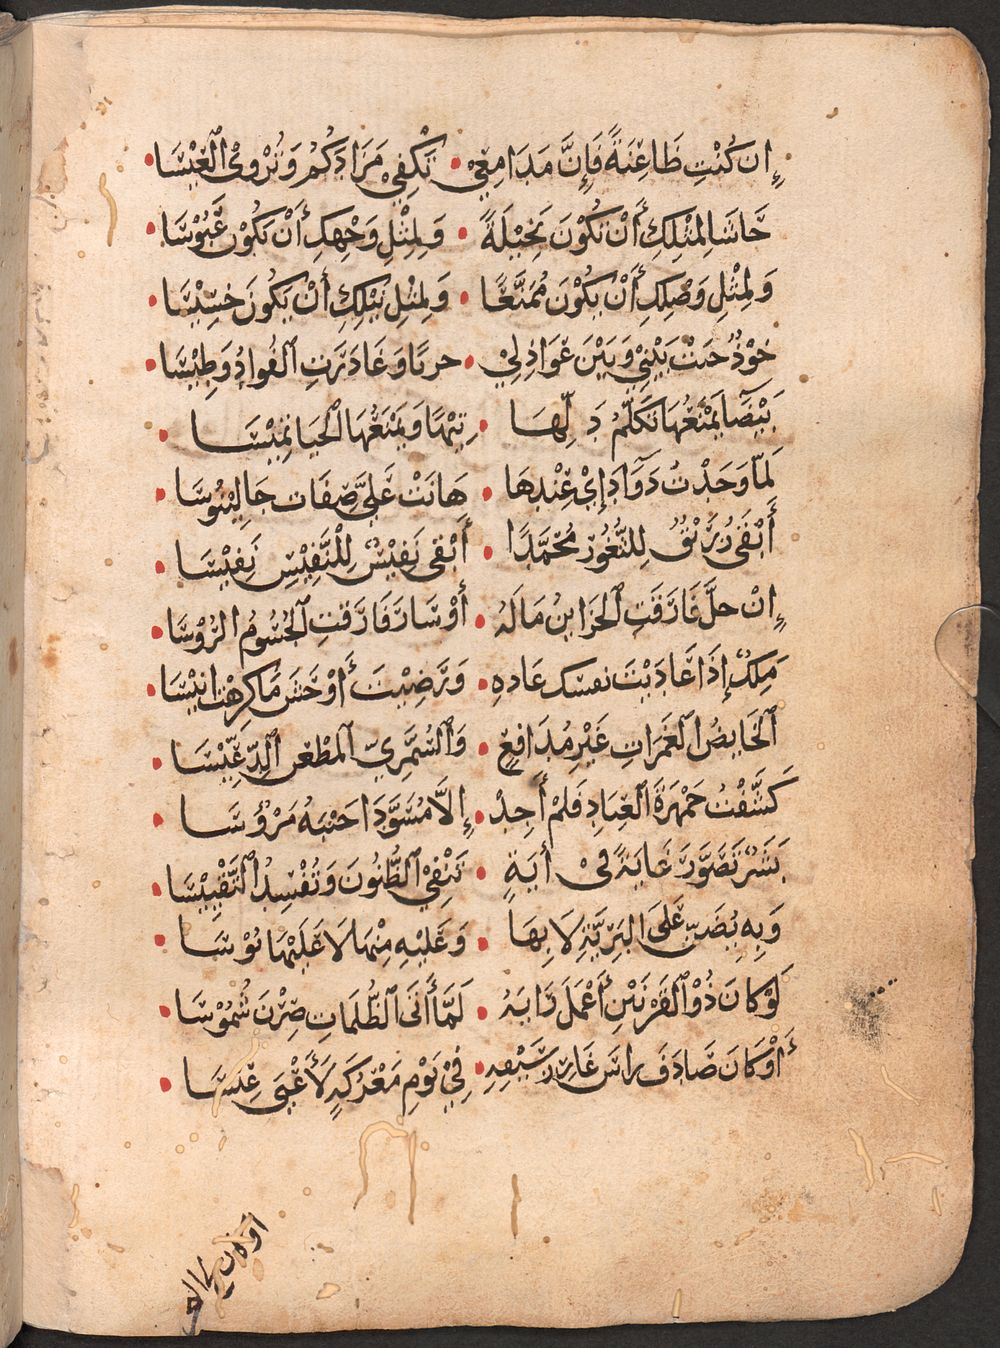 إِن كُنْتِ ظَاعِنَةً فَإِنَّ مَدَامِعِيْ • تَكْفِيْ مَزَادَكُمُ وَتُرْوِيْ العِيْسَا •
حَاشَا لِمِثْلِكِ أَنْ تَكُوْنَ بَخِيْلَةً • وَلِمِثْلِ وَجْهِكِ أَنْ يَكُوْنَ عَبُوْسَا •
وَلِمِثْلِ وَصْلِكِ أَنْ يَكُوْنَ مُمَنَّعًا • وَلِمِثْلِ نَيْلِكِ أَنْ يَكُوْنَ خَسِيْسَا •
خَوْدٌ جَنَتْ بَيْنِيْ وَبَيْنَ عَوَاذِلِيْ • حربًا وَغَادَرَتِ الفُوادُ وَطِيْسَا •
بَيْضَآ يَمْنَعُهَا تَكَلَّمُ دَلِّهَا • تِيْهًا وَيَمْنَعُهَا الحَيَا تَمِيْسَا •
لَمّا وَجَدْتُ دَوَآدَ إِيْ عِنْدِهَا • هَانَتْ عَلَيَّ صِفَات جَالِيْنُوسَا •
أَبْقَى زُرَيْقٌ لِلثُّغُوْرِ مُحَمَّدًا • أَبْقَى نَفِيْسٌ لِلْنَّفِيْسِ نَفِيْسَا •
إِنْ حلَّ فَارَقَتِ الخَزَاينُ مَالَهُ • أَوْ سَارَ فَارَقتِ الجُسُومُ الرُوْسَا •
مَلِكٌ إِذَا عَادَيْتَ نفسك عَادهِ • وَرَضِيْتَ أَوْحَشَ مَا كرِهْتَ انيْسَا •
الخَايِضُ الغَمَرَاتِ غَيْرَ مُدَافِعٍ • وَالشَّمَّرِيّ المِطْعَن الدِّعِّيْسَا •
كَشَّفْتُ جَمْهَرَةَ العِبَادِ فَلَمْ أَجِدْ • إِلَّا مُسَوَّدَا جَنْبَهُ مَرْؤُسَا •
بَشَرٌ تَصَوَّرَ غَايَةً فِيْ أيَةٍ • تَنْفِيْ الظُّنُونَ وَتُفْسِدُ التَّقْيِيْسَا •
وَبِهِ يُضَنّ عَلَى البَرِيَّةِ لَا بِهَا • وَعَلَيْهِ مِنْهَا لَا عَلَيْهَا يُوْسَا •
لَوْ كانَ ذُوْ القَرْنَيْنِ أَعْمَلَ رَايَهُ • لَمَّا أَتَى الظُّلُمَاتِ صِرْنَ شُمُوْسَا •
أَوْ كَانَ صَادَفَ رَاسَ عَازِرَ سَيْفِهِ • فِيْ يَوْمِ مَعْرَكَةٍ لَأَعْيَى عِيسَا •